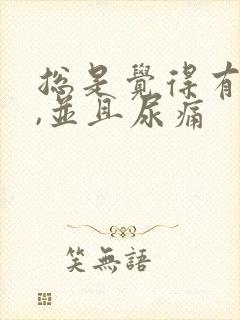 總是覺得有
,並且尿痛
笑無語